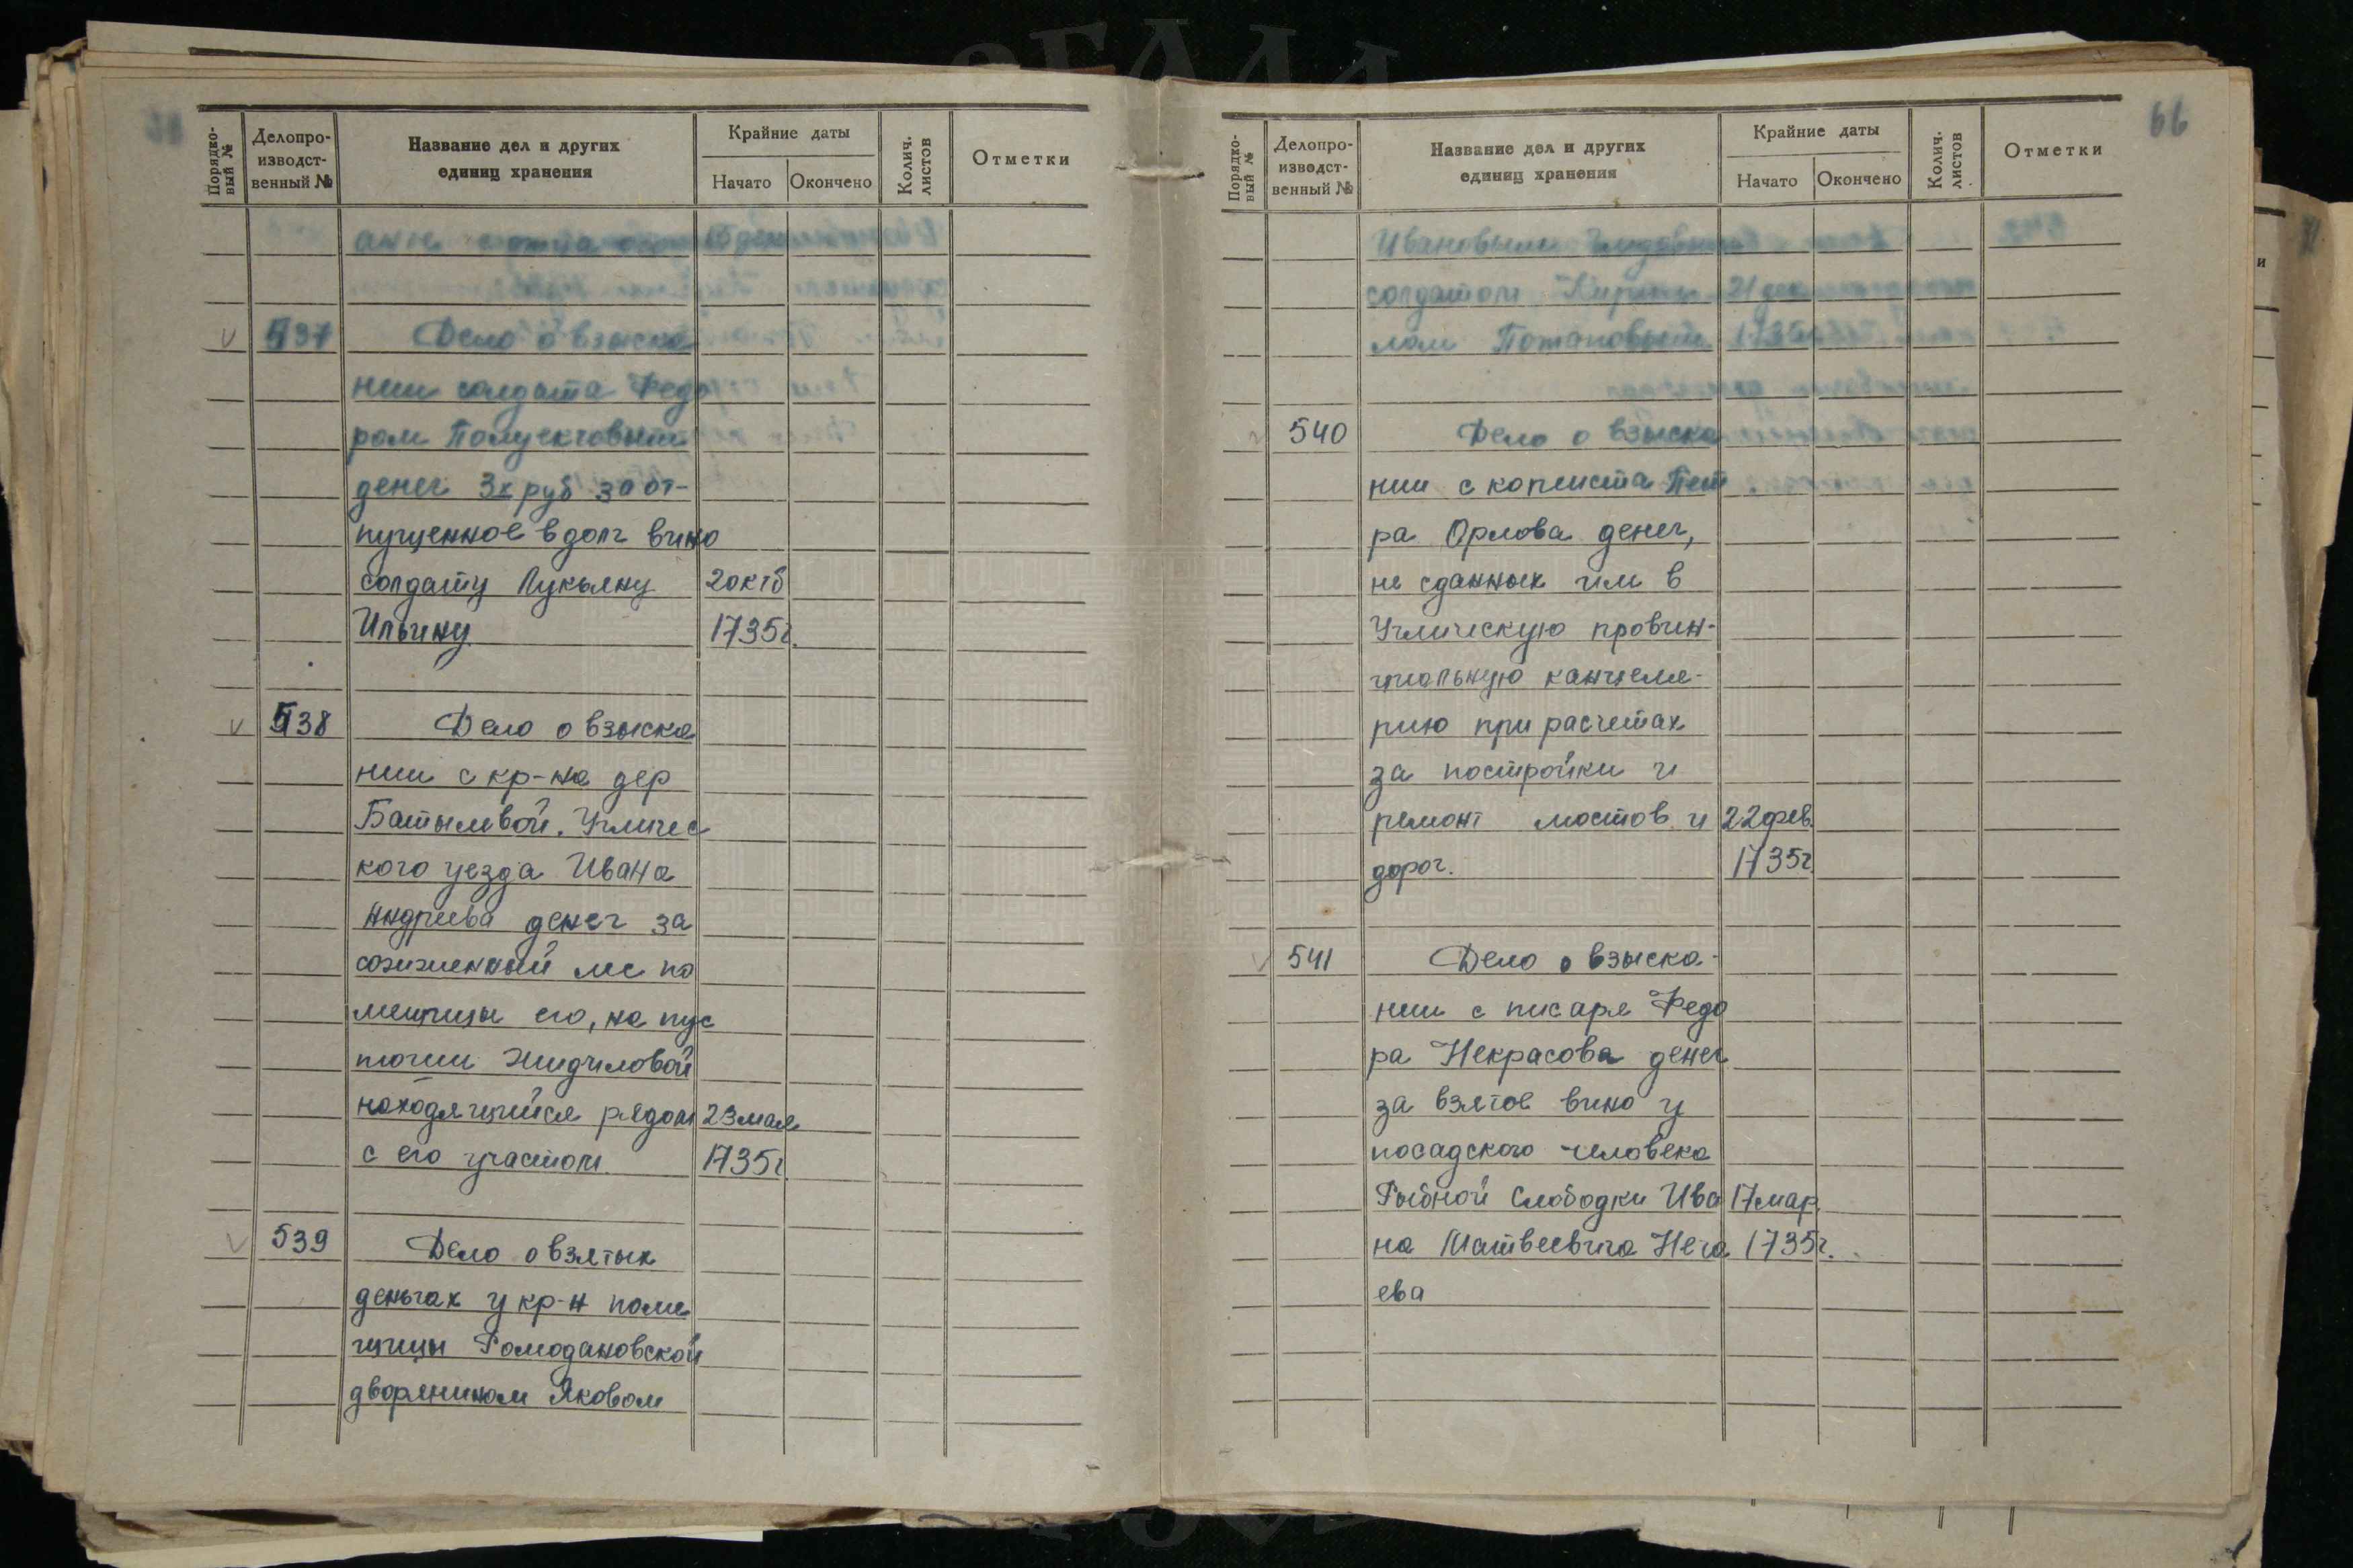 Порядко-
вый №
Делопро-
изводст-
венный №
Название дел и других
единиц хранения
Крайние даты
Начато
Окончено
Колич.
листов
Отметки
537
Дело о взыска
нии солдата Федо
ром Полуектовым
денег 3х руб за от-
пущенное в долг вино
солдату Лукьяну 2 октб
Ильину 1735г.
538
Дело о взыска
нии с кр-на дер
Батыевой, Угличес
кого уезда Ивана
Андреева денег за
сожженный лес по
мещицы его, на пус
тоши
находящийся рядом 23 мая
с его участом 1735г.
539
Дело о взятых
деньгах у кр-н поме
щицы Ромодановской
дворянином Яковом
66
Порядко-
вый №
Делопро-
изводст-
венный №
Название дел и других
единиц хранения
Крайние даты
Начато
Окончено
Колич.
листов
Отметки
Ивановым
солдатом 21 дек
лом Потаповым 1735
540
Дело о взыска
нии с кописта Пет
ра Орлова денег,
не сданных им в
Угличскую провин-
циальную канцеля-
рию при расчетах
за постройки и
ремонт мостов и 22 фев.
дорог. 1735г.
541
Дело о взыска-
нии с писаря Федо
ра Некрасова денег
за взятое вино у
посадского человека
Рыбной Слободки Ива 17 мар.
на Матвеевича Неча 1735г.
ева